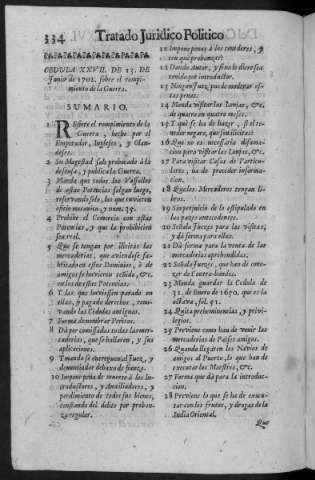 334 Tratado Juridico Politico
CEDULA XXVII. DE 13. DE
Junio de 1702. sobre el rompi-
miento de la Guerra.
SUMARIO.
1 Refiere el rompimiento de la
Guerra, hecho por el
Emperador, Ingleses, y Olan-
deses.
2 Su Magestad sale probocado à la
defensa, y publica la Guerra.
3 Manda que todos los Vassallos
de estas Potencias salgan luego,
reservando solo, los que tuvieren
oficio mecanico, y num. 35.
4 Prohibe el Comercio con estas
Potencias, y que la prohibicion
sea real.
5 Que se tengan por ilicitas las
mercaderias, que aviendose fa-
bricado en estos Dominios, ò de
amigos se huvieren teñido, &c.
en los de estas Potencias.
6 I las que huviessen passado en
ellas, ò pagado derechos, reno-
vando las Cedulas antiguas.
7 Forma de nombrar Peritos.
8 Dà por comissadas todas las mer-
caderias, que se hallaren, y sus
aplicaciones.
9 Tomando se entregue en al Juez, y
denunciador debaxo de fianza.
10 Impone pena de muerte à los In-
troductores, y Auxiliadores, y
perdimiento de todos sus bienes,
constando del delito por proban-
za regular.
11 Impone penas à los tenedores, y
con què probanzas?
12 Dando Autor, y si no lo diere sea
tenido por introductor.
13 Ningun Juez pueda moderar es-
tas penas.
14 Manda visitar las Lonjas, &c.
de quatro en quatro meses.
15 I què se ha de hazer, si el te-
nedor negare, que son ilicitas?
16 Que no es necessaria difunc-
cion para visitar las Lonjas, &c.
17 Para visitar Casas de Particu-
lares, ha de preceder informa-
cion.
18 Que los Mercaderes tengan li-
bros.
19 Sin perjuicio de lo estipulado en
las pazes antecedentes.
20 Señala Juezes para las visitas,
y dà forma para ellas.
21 Dà forma para la venta de las
mercaderias aprehendidas.
22 Señala Juez, que han de cono-
cer de Contra-bandos.
23 Manda guardar la Cedula de
31. de Enero de 1650. que es la
octava, fol. 41.
24 Quita preheminencias, y privi-
legios.
25 Previene como han de venir las
mercaderias de Paises amigos.
26 Quando llegaren los Navios de
amigos de Puerto, lo que han de
executar los Maestres, &c.
27 Forma que dà para la introduc-
cion.
28 Previene lo que se ha de execu-
tar con los frutos, y drogas de la
India Oriental.
Que